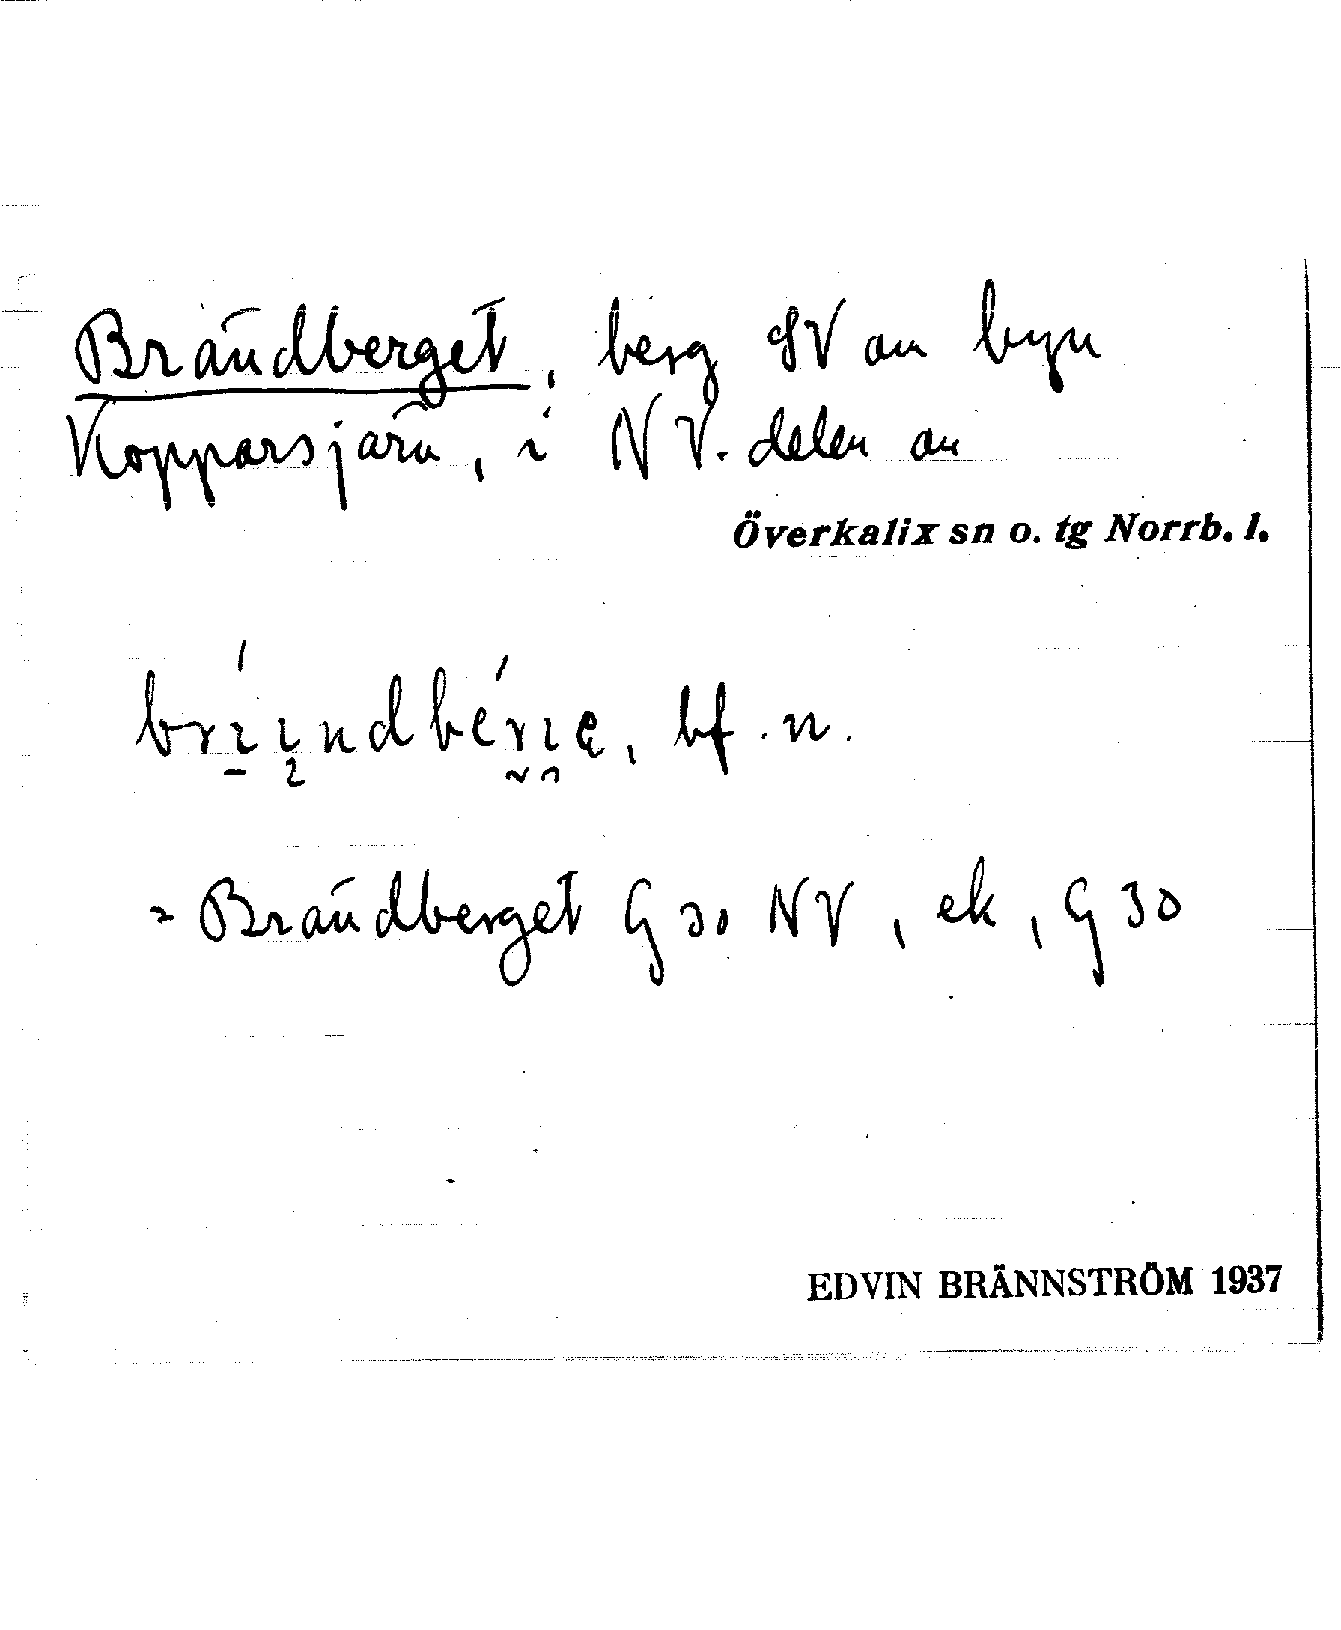 Brändberget, berg SV om byn
Kopparsjärv, i NV. delen av
Överkalix sn o. tg Norrb. l.
bf. n.
= Brändberget G 30 NV, ek, G 30
EDVIN BRÄNNSTRÖM 1937